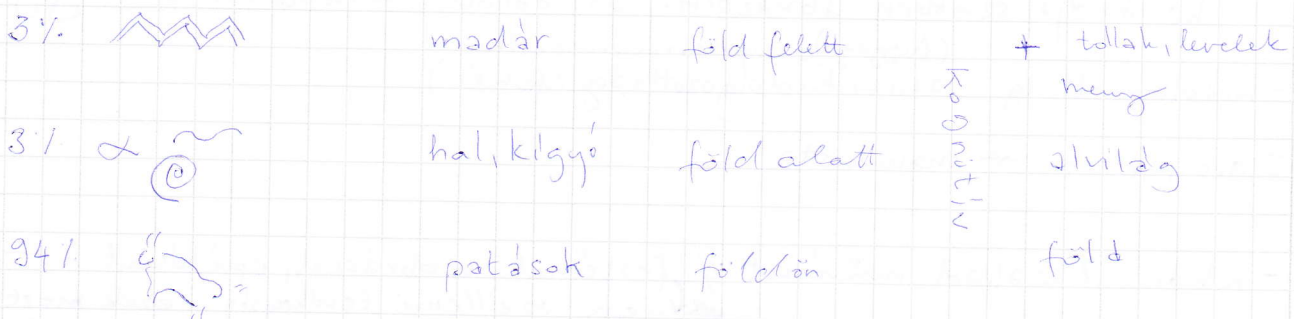 3% madár föld felett + tollak, levelek
menny
3% hal, kígyó föld alatt alvilág
94% patások földön föld
kognitív